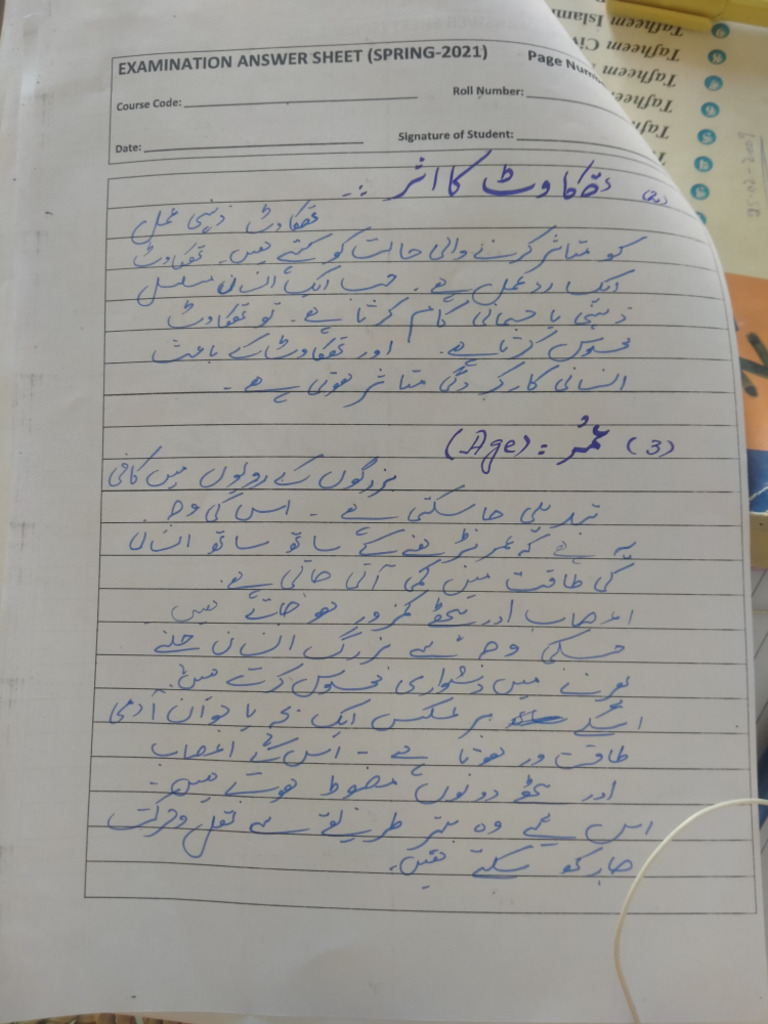 EXAMINATION ANSWER SHEET (SPRING-2021)
Page Num
Course Code:
Roll Number:
Date:
Signature of Student:
(2) تھکاوٹ کا اثر :-
تھکاوٹ ذہنی عمل
کو متاثر کرنے والی حالت کو کہتے ہیں۔ تھکاوٹ
ایک ردعمل ہے۔ جب ایک انسان مسلسل
ذہنی یا جسمانی کام کرتا ہے۔ تو تھکاوٹ
محسوس کرتا ہے۔ اور تھکاوٹ کے باعث
انسانی کارکردگی متاثر ہوتی ہے۔
(3) عمُر : (Age)
بزرگوں کے رویوں میں کافی
تبدیلی جا سکتی ہے۔ اس کی وجہ
یہ ہے کہ عمر بڑھنے کے ساتھ ساتھ انسان
کی طاقت میں کمی آتی جاتی ہے۔
اعصاب اور پٹھے کمزور ہو جاتے ہیں
جسکی وجہ سے بزرگ انسان چلنے
پھرنے میں دشواری محسوس کرتے ہیں۔
اسکے برعکس ایک بچہ یا جوان آدمی
طاقت ور ہوتا ہے۔ اس کے اعصاب
اور پٹھے دونوں مضبوط ہوتے ہیں۔
اس لیے وہ بہتر طریقے سے نقل و حرکت
جار کھ سکتے ہیں۔
Tafheem Islami
Tafheem Civ
Tafheem
Tafheem
Tafh
25-02-2009